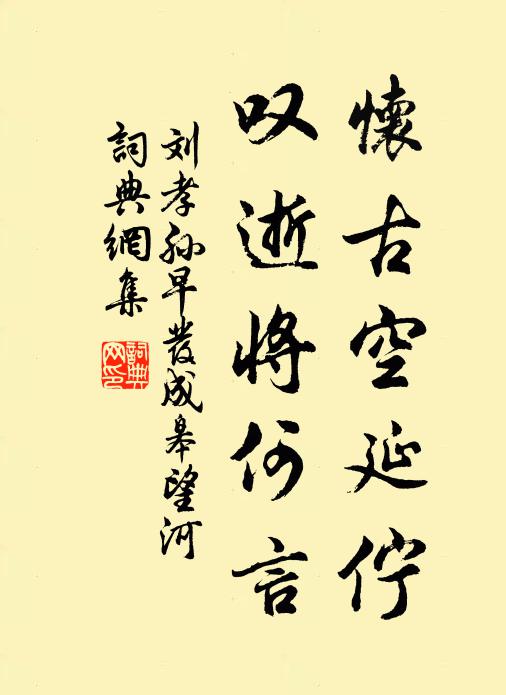 懷古空延佇
叹逝將何言
刘孝孙早發成皋望河
詞典網集
詞典
网印